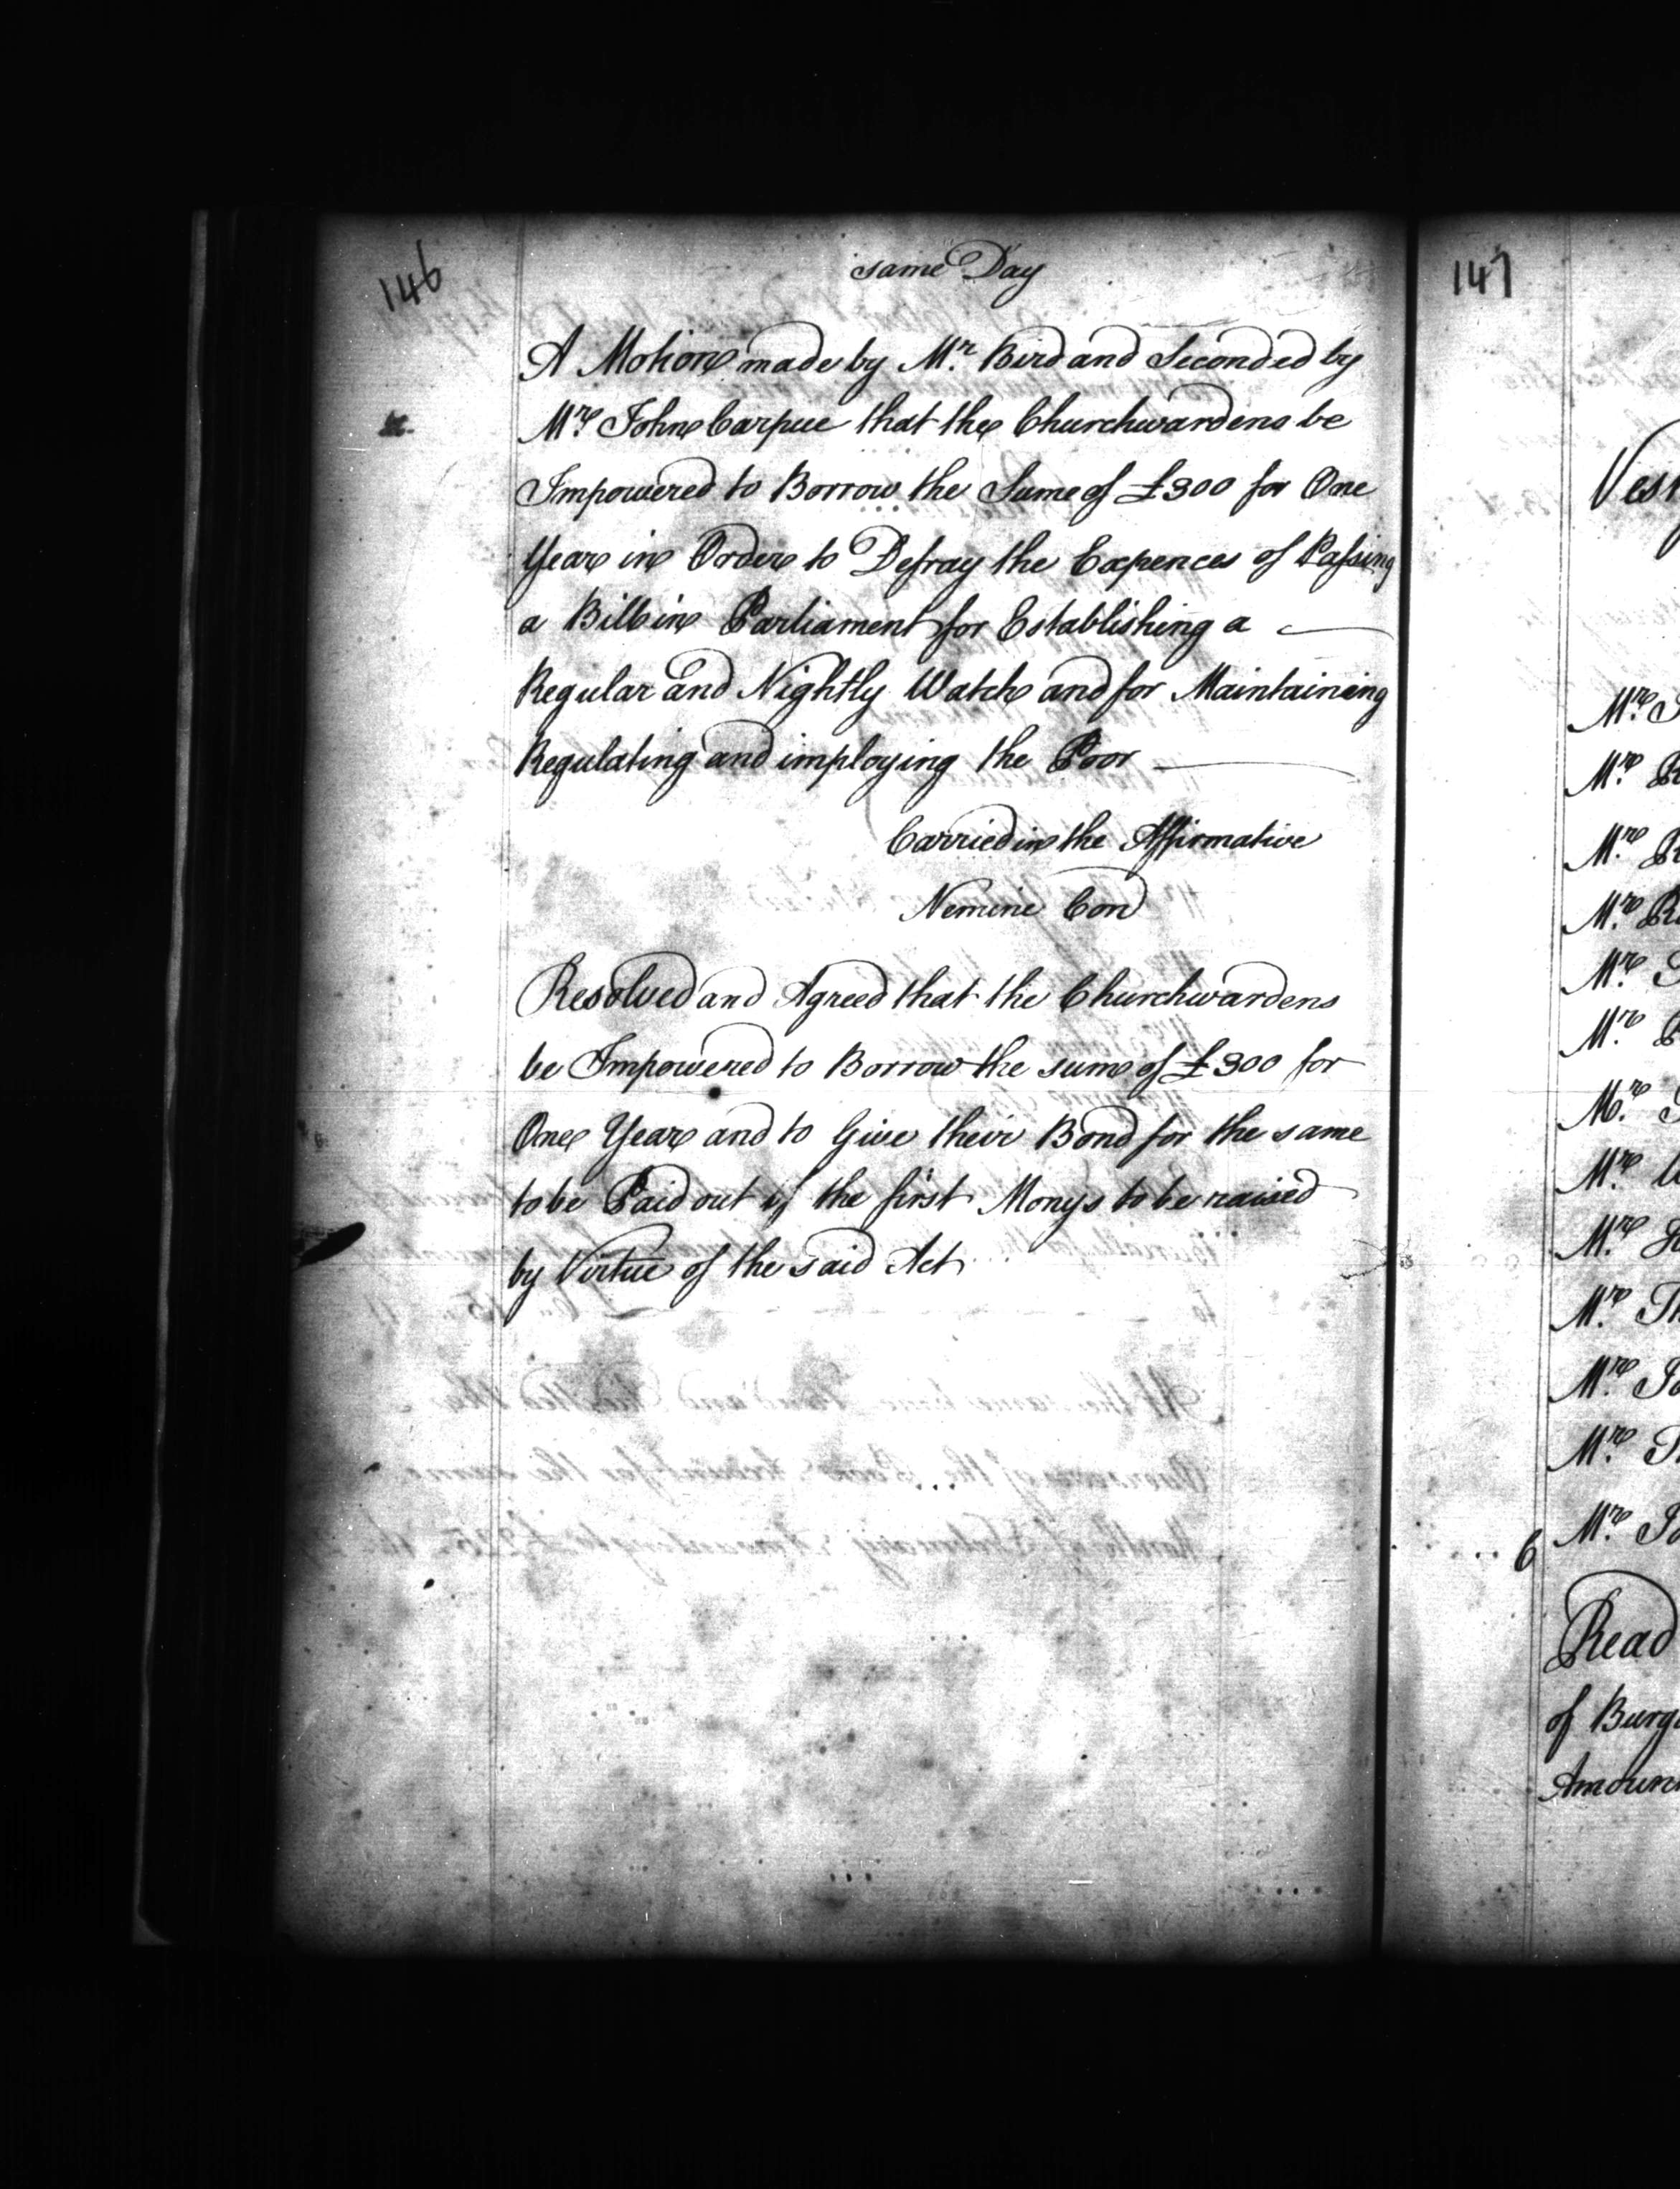 146
same Day
A Motion made by Mr. Bird and Seconded by
Mr. John Carpue that the Churchwardens be
Impowered to Borrow the Sume of £300 for One
Year in Order to Defray the Expences of Passing
a Bill in Parliament for Establishing a
Regular and Nightly Watch and for Maintaining
Regulating and imploying the Poor
Carried in the Affirmative
Nemine Con
Resolved and Agreed that the Churchwardens
be Impowered to Borrow the sum of £300 for
One Year and to Give their Bond for the same
to be Paid out of the first Monys to be raised
by Virtue of the said Act
147
Mr.
Mr.
Mr.
Mr.
Mr.
Mr.
Mr.
Mr.
Mr.
Mr.
Mr.
Mr.
6 Mr.
Read
of